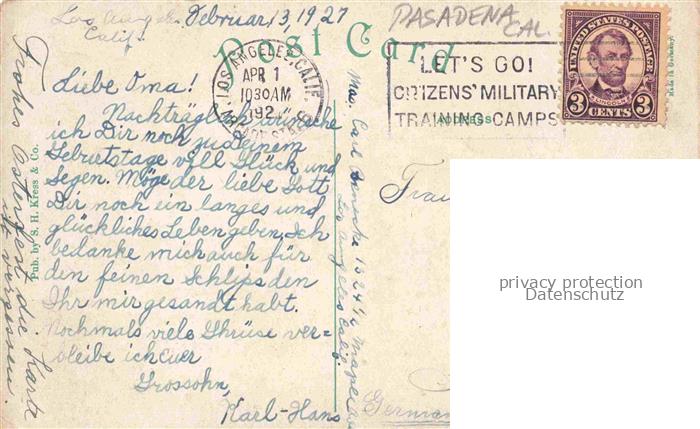 Los Angeles
Calif.
Februar 13, 1927
Post Card
PASADENA
CAL.
LOS ANGELES, CALIF.
APR 1
1030AM
192
LET'S GO!
CITIZENS' MILITARY
TRAINING CAMPS
Address
UNITED STATES POSTAGE
LINCOLN
3 CENTS 3
Made in Germany
Liebe Oma!
Nachträglich wünsche
ich Dir noch zu deinem
Geburtstage viell Glück und
Segen. Möge der liebe Gott
Dir noch ein langes und
glückliches Leben geben. Ich
bedanke mich auch für
den feinen Schlips den
Ihr mir gesandt habt.
Nochmals viele Grüse ver=
bleibe ich Euer
Grossohn,
Karl-Hans
Frohes Osterfest die Karte
ist vergessen.
Pub. by S. H. Kress & Co.
Carl
Los Angeles Calif.
Frau
Germany
privacy protection
Datenschutz